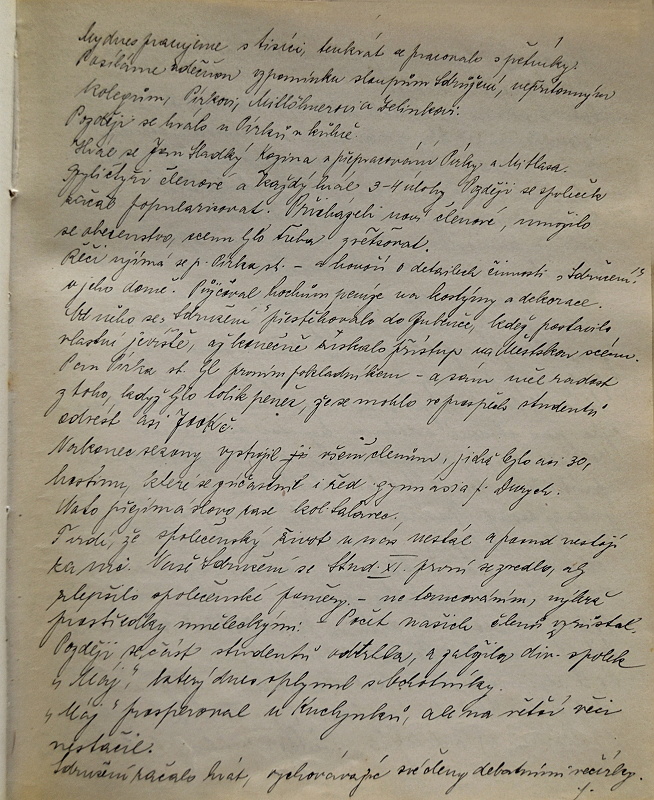 My dnes pracujeme s tisíci, tenkrát se pracovalo s pětníky.
Posíláme vděčnou vzpomínku sloupům Sdružení, nepřítomným
kolegům, Pírkovi, Mittöhnerovi a Delínkovi.
Později se hrálo u Pírků v kůlně.
Hrál se Jan Sladký Kozina v přepracování Pírky a Mitlasa.
Byli čtyři členové a každý hrál 3-4 úlohy. Později se společ
začal popularisovat. Přicházeli noví členové, množilo
se obecenstvo, scénu bylo třeba zvětšovat.
Řeči ujímá se p. Pírka st. - a hovoří o detailech činnosti „Sdružení"
v jeho domě. Půjčoval hochům peníze na kostýmy a dekorace.
Od něho se „Sdružení" přestěhovalo do Bubenče, kdež postavilo
vlastní jeviště, až konečně získalo přístup na Městskou scénu.
Pan Pírka st. byl prvním pokladníkem - a sám měl radost
z toho, když bylo tolik peněz, že se mohlo ve prospěch studentů
odvést asi Kč.
Na konec sezony vystrojil všem členům, jichž bylo asi 30,
hostinu, které se súčastnil i řed. gymnasia p.
Nato přejímá slovo zase kol.
Tvrdí, že společenský život u nás nestál a posud nestojí
za nic. Naše Sdružení se Stud. XI. první se zvedlo, aby
zlepšilo společenské poměry. - ne tancováním, nýbrž
prostředky uměleckými. - Počet našich členů vzrůstal.
Později se část studentů odtrhla, a založila div. spolek
„Máj", který dnes oplývá ochotníky.
„Máj" prosperoval u Kuchynků, ale na větší věci
nestačil.
Sdružení začalo hrát, vychovávajíc své členy debatními večírky.